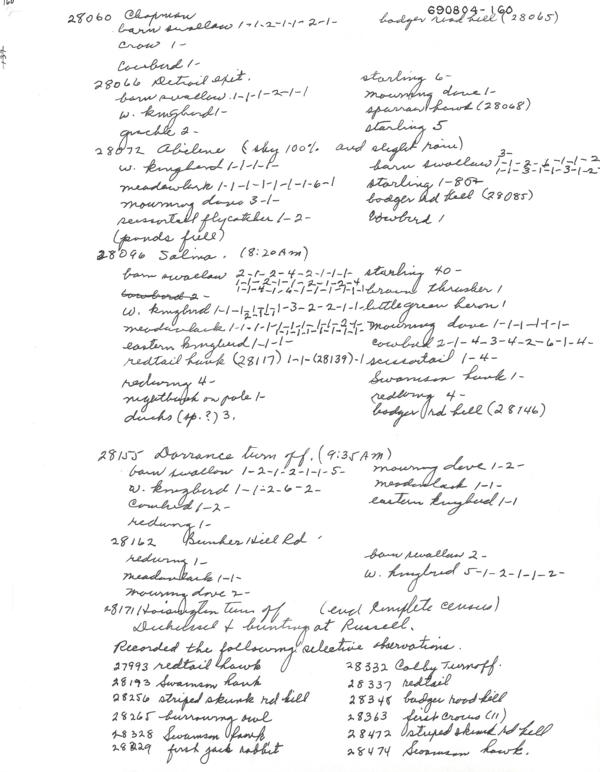 690804-160
28060 Chapman
barn swallow 1-1-2-1-1-2-1-
badger road kill (28065)
crow 1-
Cowbird 1-
28066 Detroit exit.
starling 6-
barn swallow 1-1-1-2-1-1
mourning dove 1-
w. kingbird 1-
sparrow hawk (28068)
grackle 2-
starling 5
28072 Abilene (sky 100% and slight rain)
w. kingbird 1-1-1-1-
barn swallow
meadowlark 1-1-1-1-1-1-1-6-1
starling 1-80+
mourning doves 3-1-
badger rd kill (28085)
scissortail flycatcher 1-2-
Cowbird 1
(ponds full)
28096 Salina. (8:20 AM)
barn swallow 2-1-2-4-2-1-1-1-
starling 40-
cowbird 2-
brown thrasher 1
w. kingbird
little green heron 1
meadowlark
mourning dove 1-1-1-1-1-
eastern kingbird 1-1-1-
cowbird 2-1-4-3-4-2-6-1-4-
redtail hawk (28117) 1-1-(28139)-1
scissortail 1-4-
redwing 4-
Swainson hawk 1-
nighthawk on pole 1-
redwing 4-
ducks (sp.?) 3.
badger rd kill (28146)
28155 Dorrance turn off. (9:35 AM)
barn swallow 1-2-1-2-1-1-5-
mourning dove 1-2-
w. kingbird 1-1-2-6-2-
meadowlark 1-1-
Cowbird 1-2-
eastern kingbird 1-1
redwing 1-
28162 Bunker Hill Rd
redwing 1-
barn swallow 2-
meadowlark 1-1-
w. kingbird 5-1-2-1-1-2-
mourning dove 2-
28171 Hoisington turn off (end complete census)
Dickcissel & bunting at Russell.
Recorded the following selective observations.
27993 redtail hawk
28332 Colby Turnoff.
28193 Swainson hawk
28337 redtail
28256 striped skunk rd kill
28348 badger road kill
28265 burrowing owl
28363 first crows (11)
28328 Swainson hawk
28472 striped skunk rd kill
28329 first jack rabbit
28474 Swainson hawk.